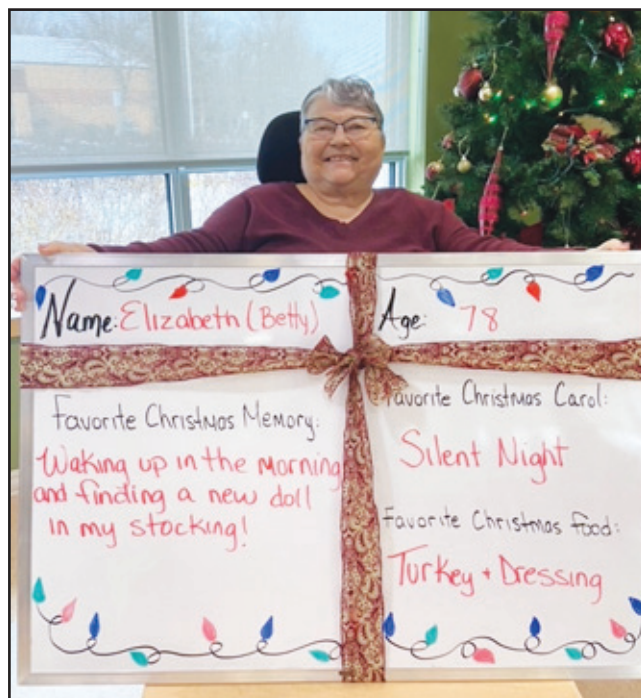 Name: Elizabeth (Betty)
Age: 78
Favorite Christmas Memory:
Waking up in the morning
and finding a new doll
in my stocking!
Favorite Christmas Carol:
Silent Night
Favorite Christmas food:
Turkey + Dressing